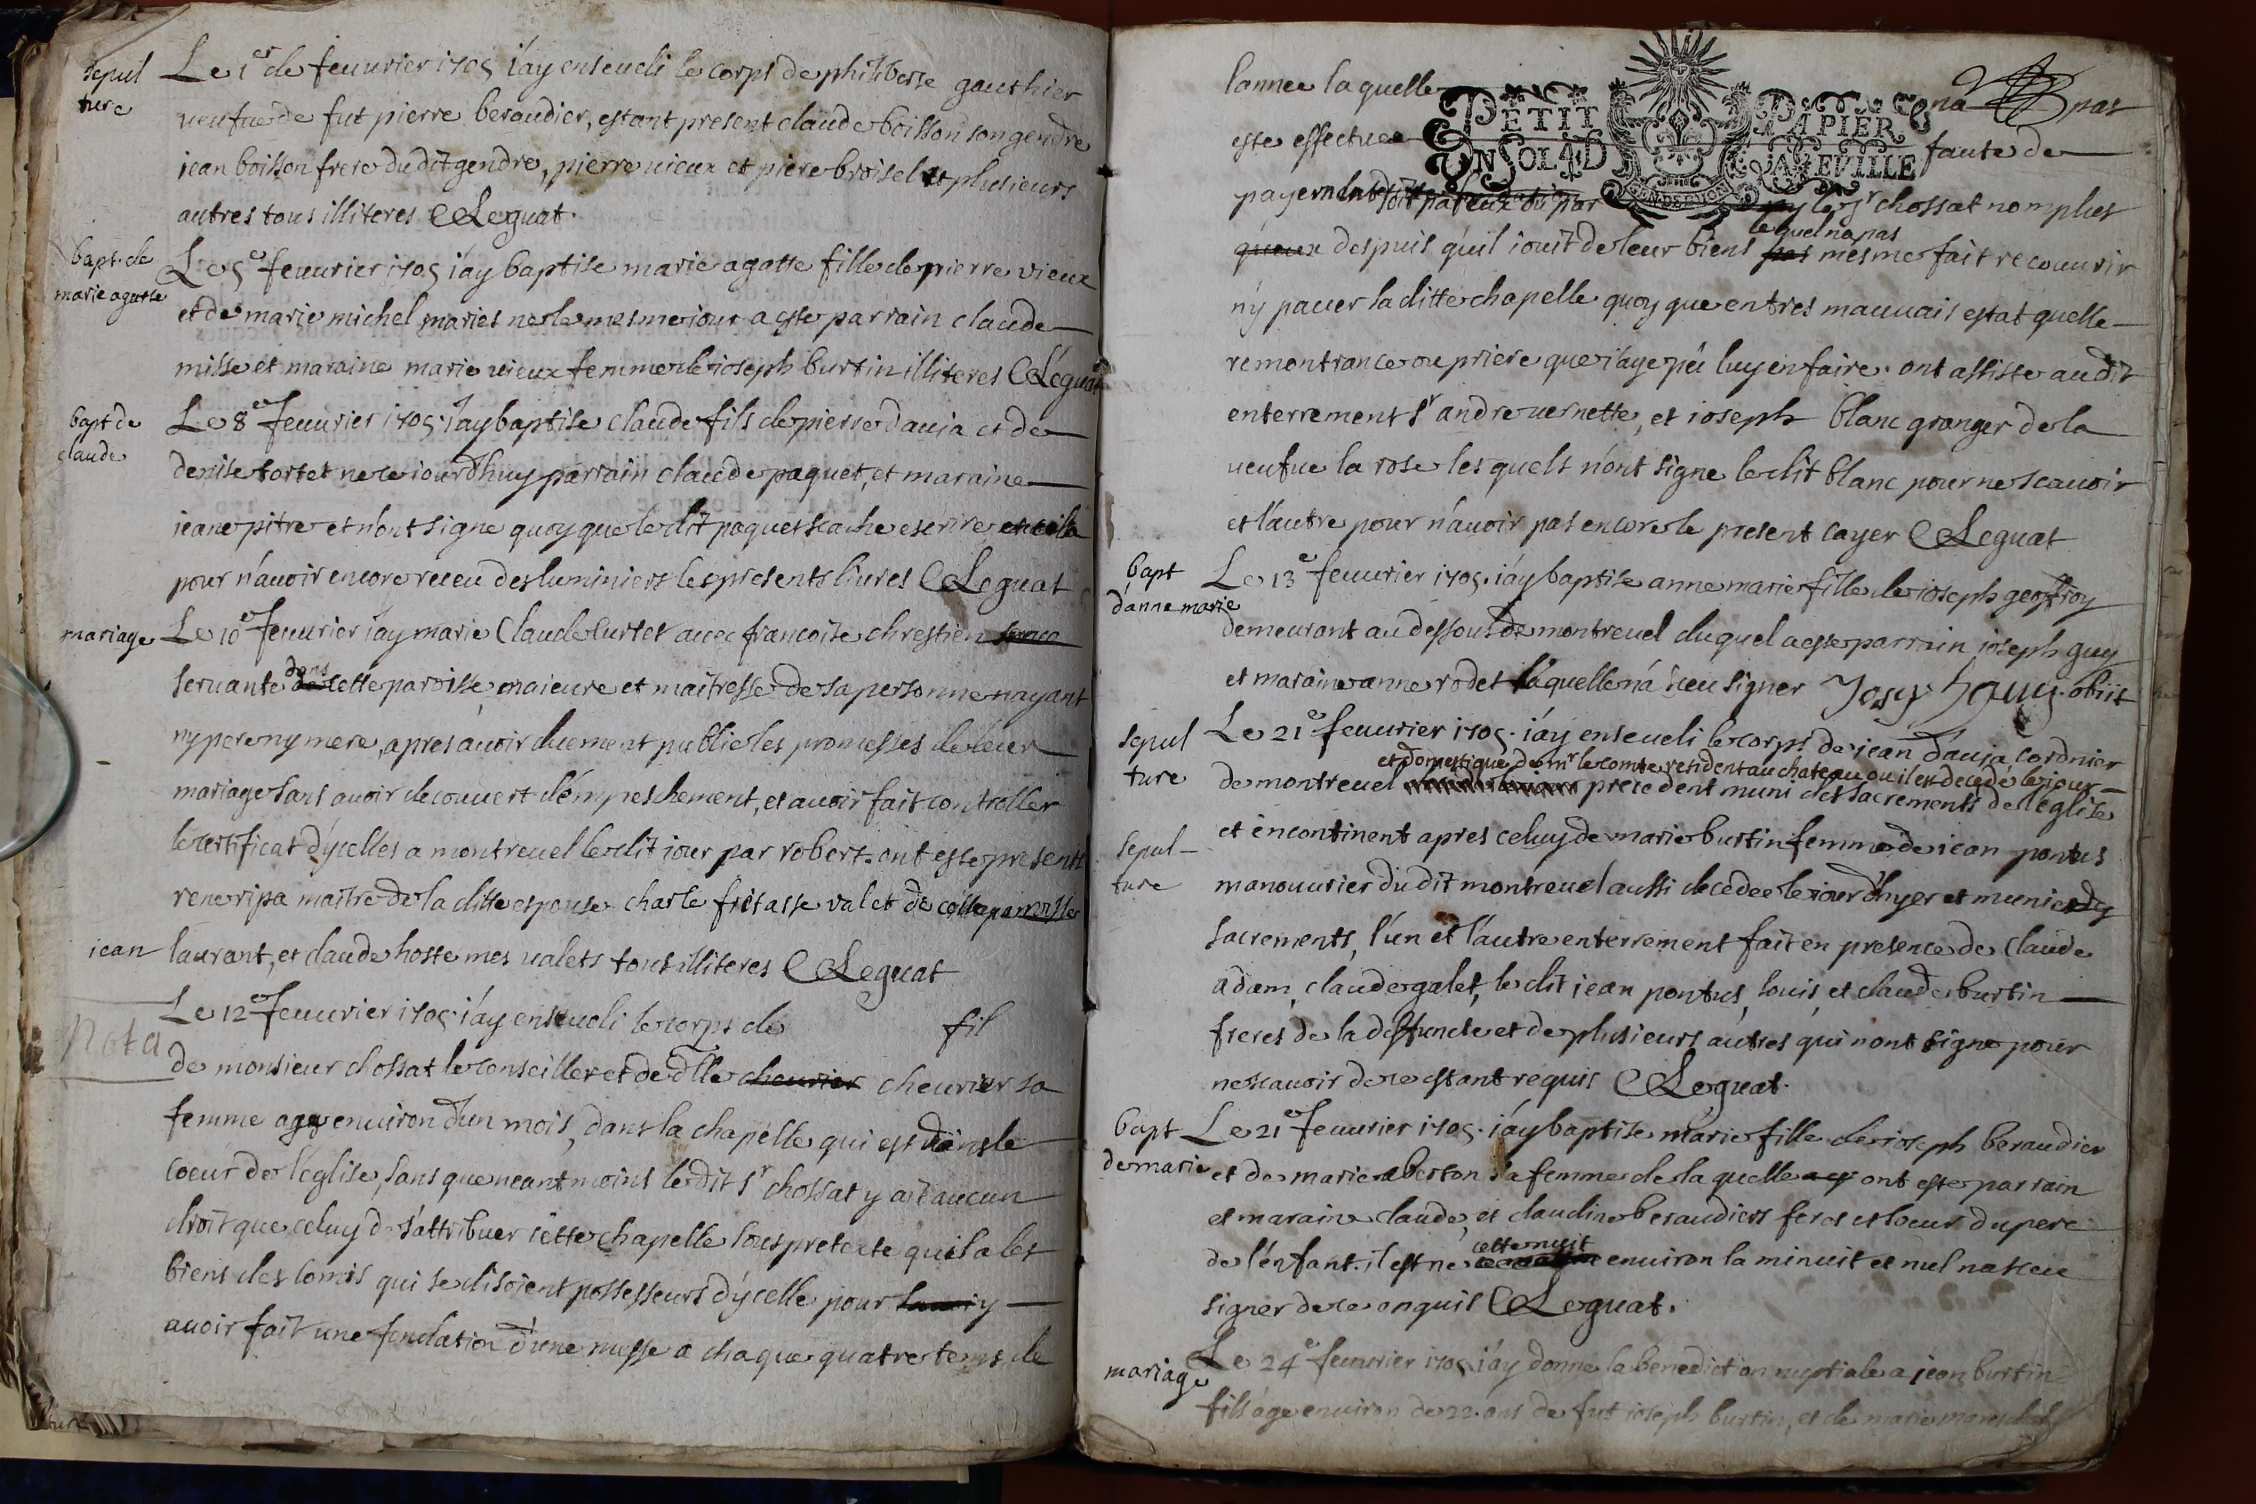 sepul
ture
Le 1er de feuurier 1705 i'ay enseueli le corps de philiberte gauthier
ueufue de fut pierre beraudier, estant present claude boisson son gendre
jean boisson frere du dit gendre, pierre uieux et piere broisel et plusieurs
autres tous illiteres CLeguat.
bapt. de
marie agatte
Le 5e feuurier 1705 i'ay baptise marie agatte fille de pierre vieux
et de marie michel maries nee le mesme iour a este parrain claude
misse et maraine marie uieux femme de ioseph burtin illiteres CLeguat
bapt de
claude
Le 8e feuurier 1705. i'ay baptise claude fils de pierre dauja et de
denise tortet ne ce iourdhuy parrain claude paquet, et maraine
jeane pitre et n'ont signe quoy que le dit paquet scache escrire et cela
pour n'auoir encore receu des luminiers les presents liures CLeguat
mariage
Le 10e feuurier i'ay marie Claude Curtet auec francoise chrestien
seruante dans cette paroisse, maieure et maitresse de sa personne nayant
ny pere ny mere, apres auoir duement publie les promesses de leur
mariage sans auoir decouuert d'empeschement, et auoir fait controller
le certificat d'ycelles a montreuel le dit iour par robert. ont este presents
rene ripa maitre de la ditte espouse charle fritasse valet de
jean
laurant, et claude hoste mes ualets tous illiteres CLeguat
Nota
Le 12e feuurier 1705. i'ay enseueli le corps de fil
de monsieur chossat le conseiller et de dlle cheurier cheurier sa
femme age enuiron d'un mois, dans la chapelle qui est dans le
coeur de l'eglise, sans que neantmoins le dit sr chossat y ait aucun
droit que celuy de s'attribuer cette chapelle sous pretexte qu'il a les
biens des comis qui se disoient possesseurs d'ycelle pour y
auoir fait une fondation d'une messe a chaque quatre tems de
lannee la quelle na pas
este effectuee faute de
PETIT PAPIER
UN SOL 4 D LA FEUILLE
payement soit par eux ou par le sr chossat nomplus
queux despuis qu'il iouit de leur biens lequel na pas mesme fait recouurir
n'y pauer la ditte chapelle quoy que en tres mauuais estat quelle
remontrance ou priere que i'aye pu luy en faire. ont assiste au dit
enterrement sr andre uernette, et ioseph blanc granger de la
ueufue la rose lesquels n'ont signe le dit blanc pour ne scauoir
et l'autre pour n'auoir pas encore le present cayer CLeguat
bapt
d'anne marie
Le 13e feuurier 1705. i'ay baptise anne marie fille de ioseph geoffroy
demeurant au dessous de montreuel duquel a este parrain ioseph guy
et maraine anne rodet laquelle n'a sceu signer Josep h guy. obiit
sepul
ture
Le 21e feuurier 1705. i'ay enseueli le corps de jean dauja cordnier
et domestique de mr le comte resident au chateau ou il est decede le jour
de montreuel precedent muni des sacrements de l'eglise
sepul-
ture
et incontinent apres celuy de marie burtin femme de jean pontus
manouurier du dit montreuel aussi decedee le iour d'hyer et munie des
sacrements, l'un et l'autre enterrement fait en presence de Claude
adam, claude galet, le dit jean pontus, louis, et claude burtin
freres de la deffuncte et de plusieurs autres qui n'ont signe pour
ne scauoir de ce estant requis CLeguat.
bapt
de marie
Le 21e feuurier 1705. i'ay baptise marie fille de ioseph beraudier
et de marie berton sa femme de la quelle ont este parrain
et maraine claude, et claudine beraudiers frere et soeur du pere
de l'enfant. il est ne cette nuit enuiron la minuit et nul na sceu
signer de ce enquis CLeguat.
mariage
Le 24e feuurier 1705 i'ay donne la benediction nuptiale a jean burtin
fils age enuiron de 22 ans de fut ioseph burtin, et de marie mareschal